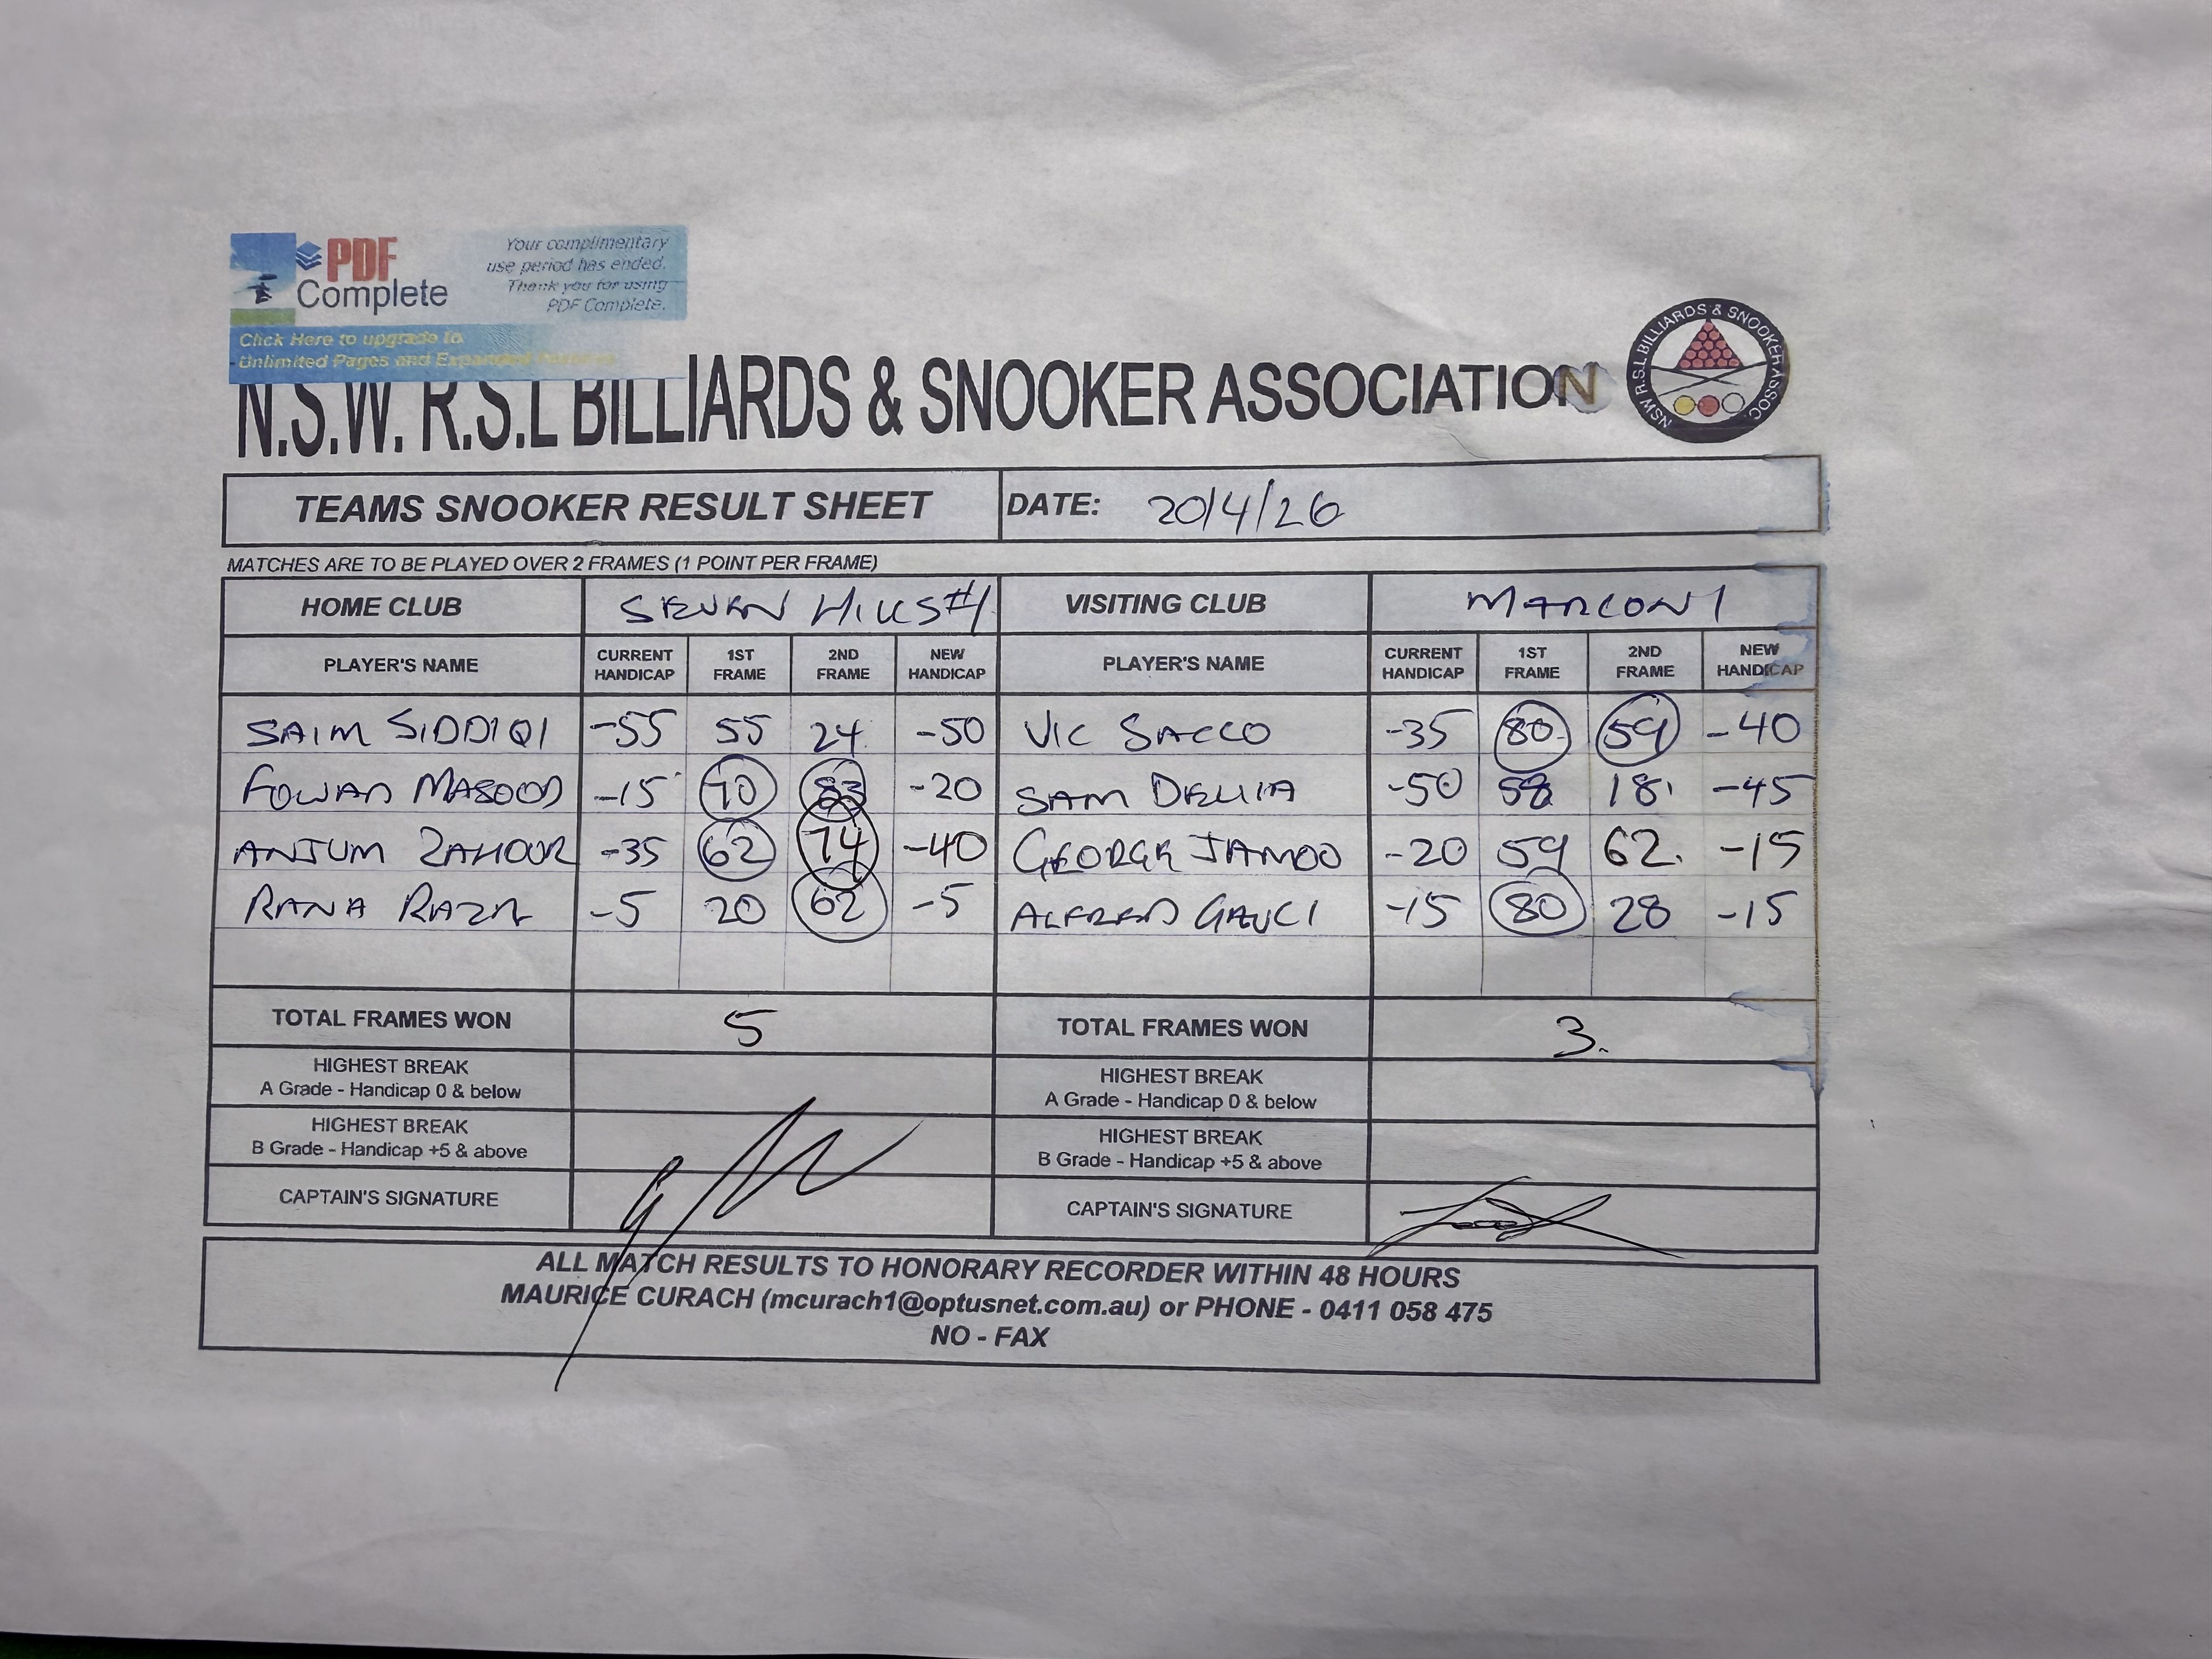 PDF Complete
Your complimentary
use period has ended.
Thank you for using
PDF Complete.
Click Here to upgrade to
Unlimited Pages and Expanded
N.S.W. R.S.L BILLIARDS & SNOOKER ASSOCIATION
NSW R.S.L BILLIARDS & SNOOKER ASSOC
TEAMS SNOOKER RESULT SHEET DATE: 20/4/26
MATCHES ARE TO BE PLAYED OVER 2 FRAMES (1 POINT PER FRAME)
HOME CLUB SEVEN HILLS #1 VISITING CLUB MARCONI
PLAYER'S NAME CURRENT HANDICAP 1ST FRAME 2ND FRAME NEW HANDICAP PLAYER'S NAME CURRENT HANDICAP 1ST FRAME 2ND FRAME NEW HANDICAP
SAIM SIDDIQI -55 55 24 -50 VIC SACCO -35 80 59 -40
FOWAD MASOOD -15 70 83 -20 SAM DELLIA -50 58 18 -45
ANJUM ZAHOOR -35 62 74 -40 GEORGE JAMOO -20 59 62 -15
RANA -5 20 62 -5 ALFRED GAUCI -15 80 28 -15
TOTAL FRAMES WON 5 TOTAL FRAMES WON 3
HIGHEST BREAK A Grade - Handicap 0 & below HIGHEST BREAK A Grade - Handicap 0 & below
HIGHEST BREAK B Grade - Handicap +5 & above HIGHEST BREAK B Grade - Handicap +5 & above
CAPTAIN'S SIGNATURE CAPTAIN'S SIGNATURE
ALL MATCH RESULTS TO HONORARY RECORDER WITHIN 48 HOURS
MAURICE CURACH (mcurach1@optusnet.com.au) or PHONE - 0411 058 475
NO - FAX